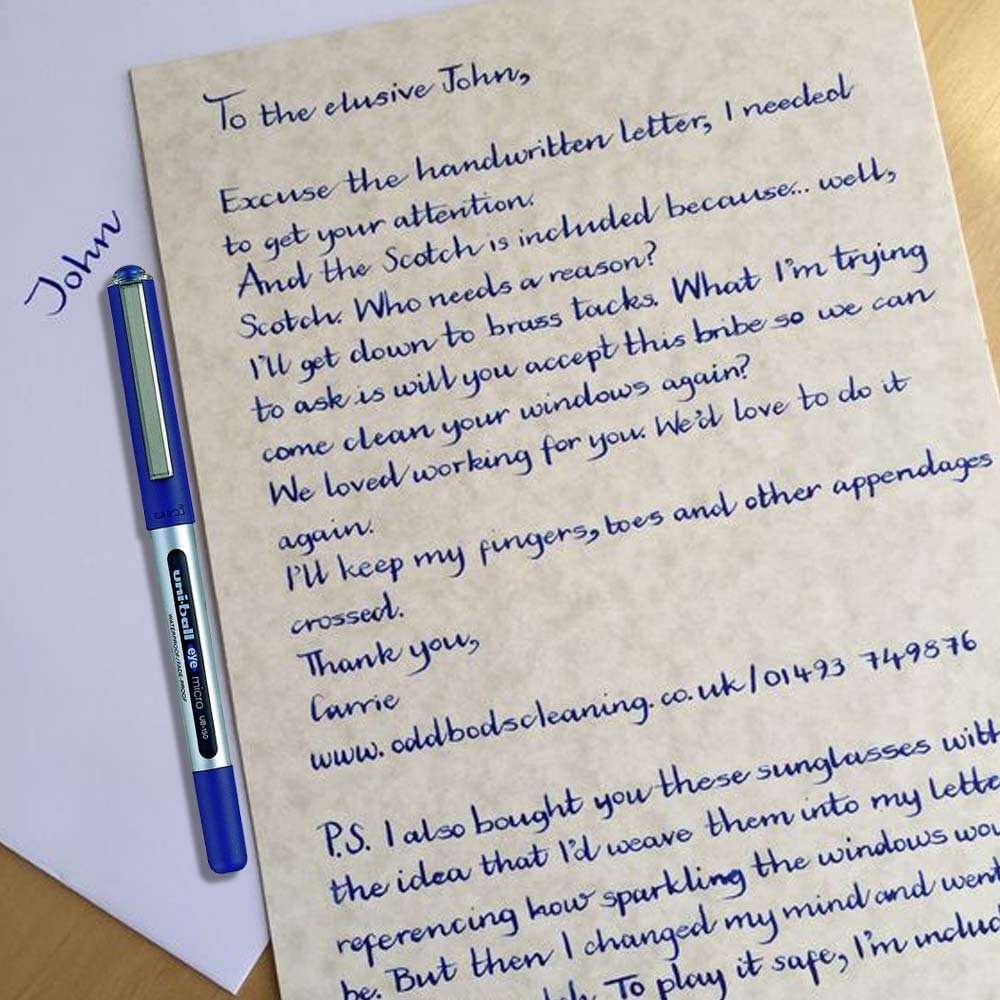 To the elusive John,
Excuse the handwritten letter, I needed
to get your attention.
And the Scotch is included because... well,
Scotch. Who needs a reason?
I'll get down to brass tacks. What I'm trying
to ask is will you accept this bribe so we can
come clean your windows again?
We loved working for you. We'd love to do it
again.
I'll keep my fingers, toes and other appendages
crossed.
Thank you,
Carrie
www.oddbodscleaning.co.uk/01493 749876
P.S. I also bought you these sunglasses with
the idea that I'd weave them into my lette
referencing how sparkling the windows wou
be. But then I changed my mind and went
To play it safe, I'm includ
John
uni
uni-ball eye micro UB-150
WATERPROOF/FADE-PROOF